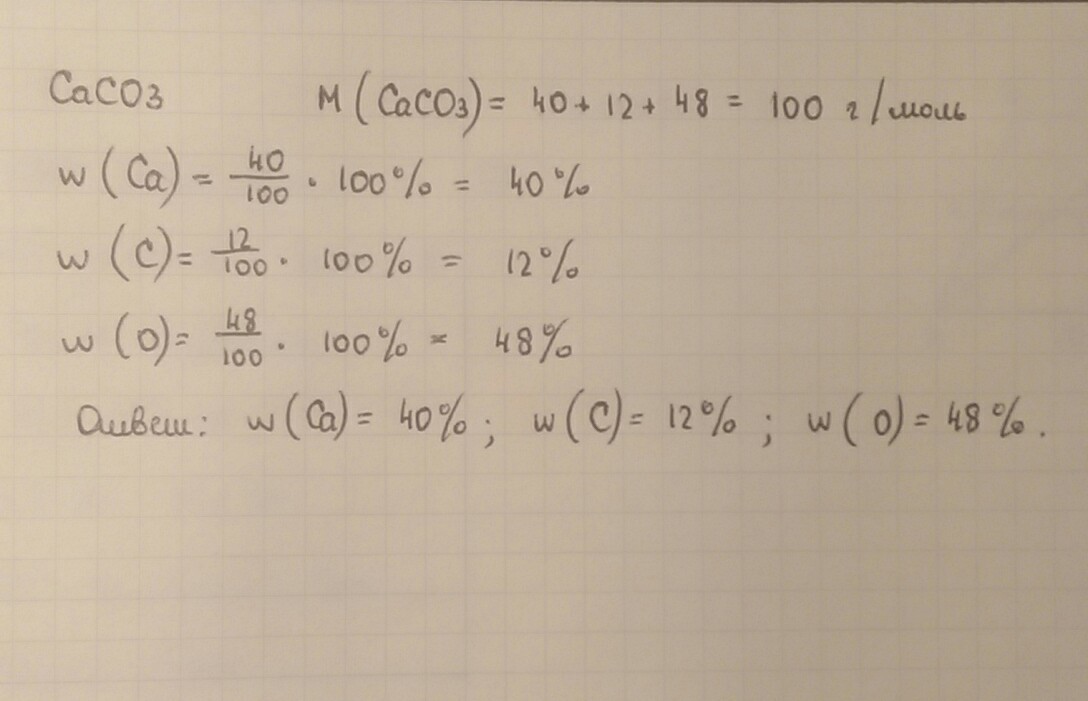 CaCO3 M(CaCO3)= 40+12+48 = 100 г/моль
w(Ca)= 40/100 · 100% = 40%
w(C)= 12/100 · 100% = 12%
w(O)= 48/100 · 100% = 48%
Ответ: w(Ca)= 40%; w(C)= 12%; w(O)= 48%.